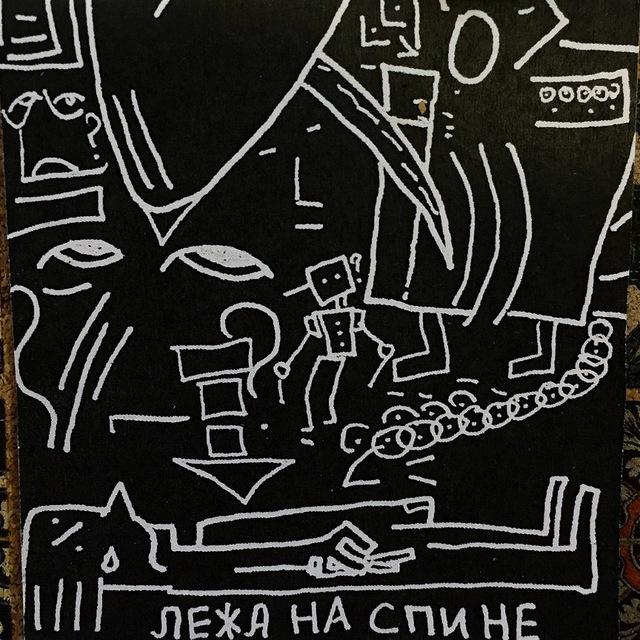 ЛЕЖА НА СПИНЕ